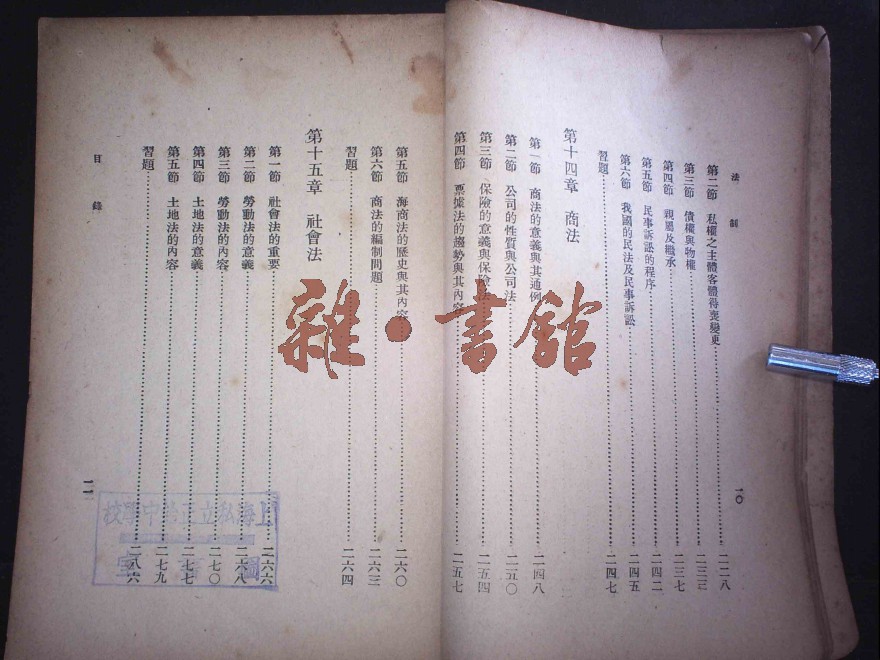 法制
第二節 私權之主體客體得喪變更……二二八
第三節 債權與物權……二三三
第四節 親屬及繼承……二三七
第五節 民事訴訟的程序……二四二
第六節 我國的民法及民事訴訟……二四五
習題……二四七
第十四章 商法
第一節 商法的意義與其通例……二四八
第二節 公司的性質與公司法……二五〇
第三節 保險的意義與保險法……二五四
第四節 票據法的趨勢與其內容……二五七
一〇
第五節 海商法的歷史與其內容……二六〇
第六節 商法的編制問題……二六三
習題……二六四
第十五章 社會法
第一節 社會法的重要……二六六
第二節 勞動法的意義……二六八
第三節 勞動法的內容……二七〇
第四節 土地法的意義……二七七
第五節 土地法的內容……二七九
習題……二八六
目錄
一一
雜·書館